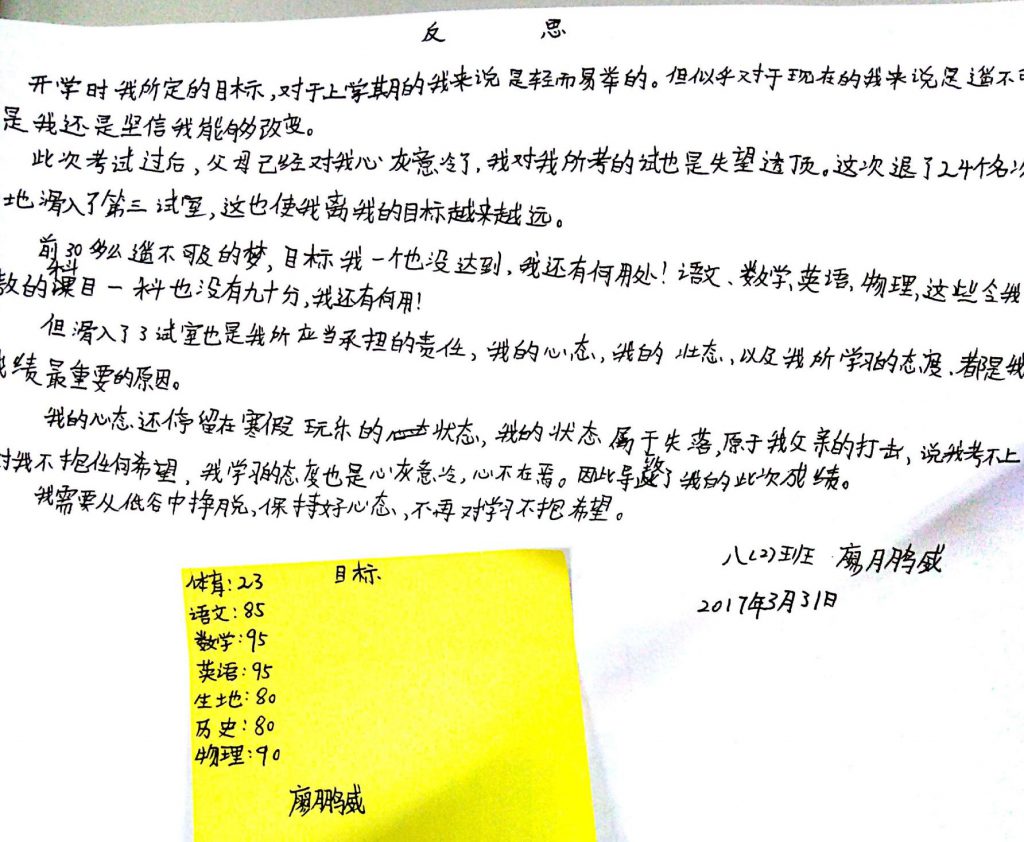 反 思
开学时我所定的目标，对于上学期的我来说是轻而易举的。但似乎对于现在的我来说是遥不可
是我还是坚信我能够改变。
此次考试过后，父母已经对我心灰意冷了，我对我所考的试也是失望透顶。这次退了24个名次
地滑入了第三试室，这也使我离我的目标越来越远。
前30多么遥不可及的梦，目标我一个也没达到，我还有何用处！语文、数学，英语，物理，这些令我
教的科目一科也没有九十分，我还有何用！
但滑入了3试室也是我所应当承担的责任，我的心态，我的壮态，以及我所学习的态度、都是我
成绩最重要的原因。
我的心态还停留在寒假玩乐的状态，我的状态属于失落，原于我父亲的打击，说我考不上
对我不抱任何希望，我学习的态度也是心灰意冷，心不在焉。因此导致了我的此次成绩。
我需要从低谷中挣脱，保持好心态，不再对学习不抱希望。
八（2）班 廖鹏威
2017年3月31日
目标
体育：23
语文：85
数学：95
英语：95
生地：80
历史：80
物理：90
廖鹏威